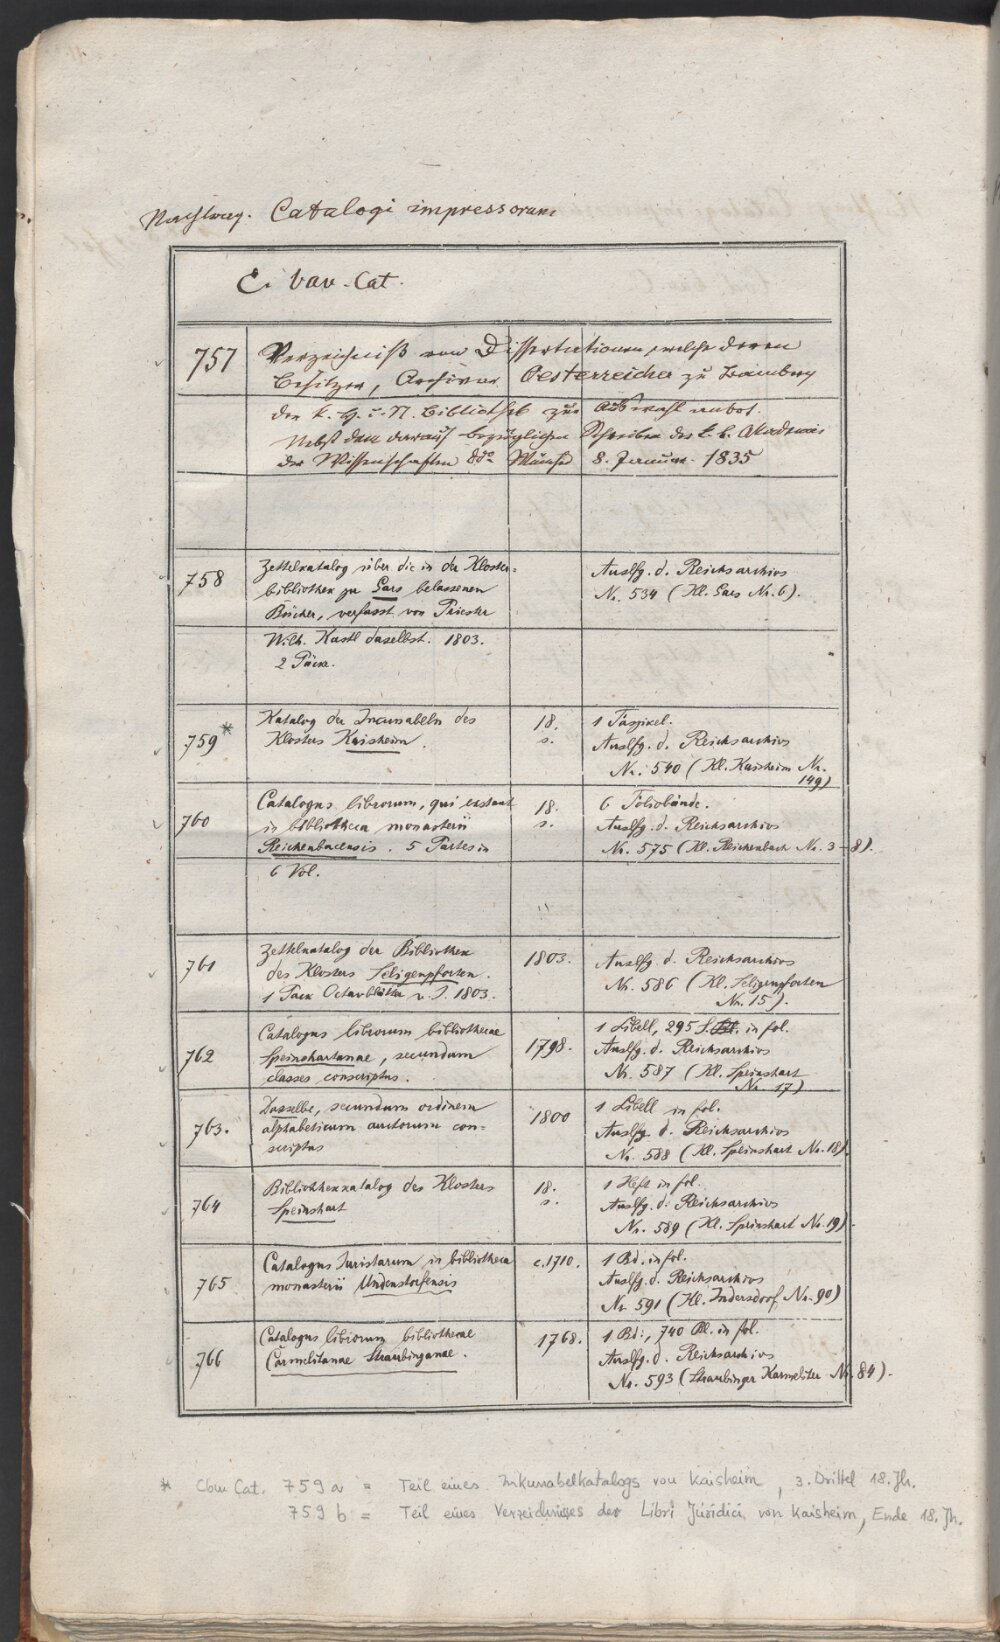 Nachtrag. Catalogi impressorum
C. bav. Cat.
757 Verzeichniß von Dissertationen, welche deren
Besitzer, Archivar Oesterreicher zu Bamberg
der k. H. u. N. Bibliothek zur Auswahl anbot.
Nebst dem darauf bezüglichen Schreiben der k. b. Akademie
der Wissenschaften ddo München 8. Januar 1835
758 Zettelkatalog über die in der Kloster-
bibliothek zu Gars belassenen
Bücher, verfasst von Priester
Wilh. Kastl daselbst. 1803.
2 Päcke.
Auslfg. d. Reichsarchivs
No. 534 (Kl. Gars No. 6).
759* Katalog der Incunabeln des
Klosters Kaisheim.
18.
s.
1 Faszikel.
Auslfg. d. Reichsarchivs
No. 540 (Kl. Kaisheim No.
149)
760 Catalogus librorum, qui exstant
in bibliotheca monasterii
Reichenbacensis. 5 Partes in
6 Vol.
18.
s.
6 Foliobände.
Auslfg. d. Reichsarchivs
No. 575 (Kl. Reichenbach No. 3-8).
761 Zettelkatalog der Bibliothek
des Klosters Seligenpforten.
1 Pack Octavblätter v. J. 1803.
1803.
Auslfg. d. Reichsarchivs
No. 586 (Kl. Seligenpforten
No. 15).
762 Catalogus librorum bibliothecae
Speinshartanae, secundum
classes conscriptus.
1798.
1 Libell, 295 S. in fol.
Auslfg. d. Reichsarchivs
No. 587 (Kl. Speinshart
No. 17)
763. Dasselbe, secundum ordinem
alphabeticum auctorum con-
scriptus
1800
1 Libell in fol.
Auslfg. d. Reichsarchivs
No. 588 (Kl. Speinshart No. 18).
764 Bibliothekkatalog des Klosters
Speinshart
18.
s.
1 Heft in fol.
Auslfg. d. Reichsarchivs
No. 589 (Kl. Speinshart No. 19).
765 Catalogus Juristarum in bibliotheca
monasterii Undenstorfensis
c. 1710.
1 Bd. in fol.
Auslfg. d. Reichsarchivs
No. 591 (Kl. Indersdorf, No. 90)
766 Catalogus librorum bibliothecae
Carmelitanae Straubinganae.
1768.
1 Bd., 740 Bl. in fol.
Auslfg. d. Reichsarchivs
No. 593 (Straubinger Karmeliter No. 84).
* Cbm Cat. 759 a = Teil eines Inkunabelkatalogs von Kaisheim, 3. Drittel 18. Jh.
759 b = Teil eines Verzeichnisses der Libri Juridici von Kaisheim, Ende 18. Jh.